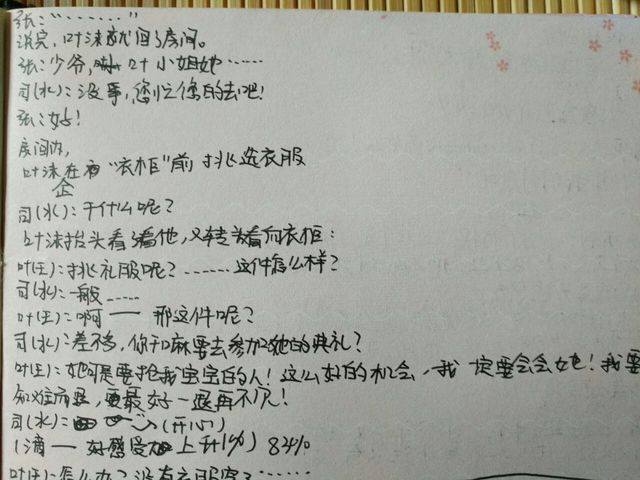 张："……"
说完，叶沫就回了房间。
张：少爷，叶小姐她……
司(水)：没事，您忙您的去吧！
张：好！
房间内，
叶沫在 "衣柜"前挑选衣服
企
司(水)：干什么呢？
叶沫抬头看了看他，又转头看向衣柜：
叶(王)：挑礼服呢？……这件怎么样？
司(水)：一般……
叶(王)：啊一 那这件呢？
司(水)：差不多，你干嘛要去参加她的典礼？
叶(王)：她可是要抢我宝宝的人！这么好的机会，我一定要会会她！我要
知难而退，要最好一退再不见！
司(水)： (开心)
(滴一 好感度 上升1%) 82%
叶(王)：怎么办？没有衣服穿了……